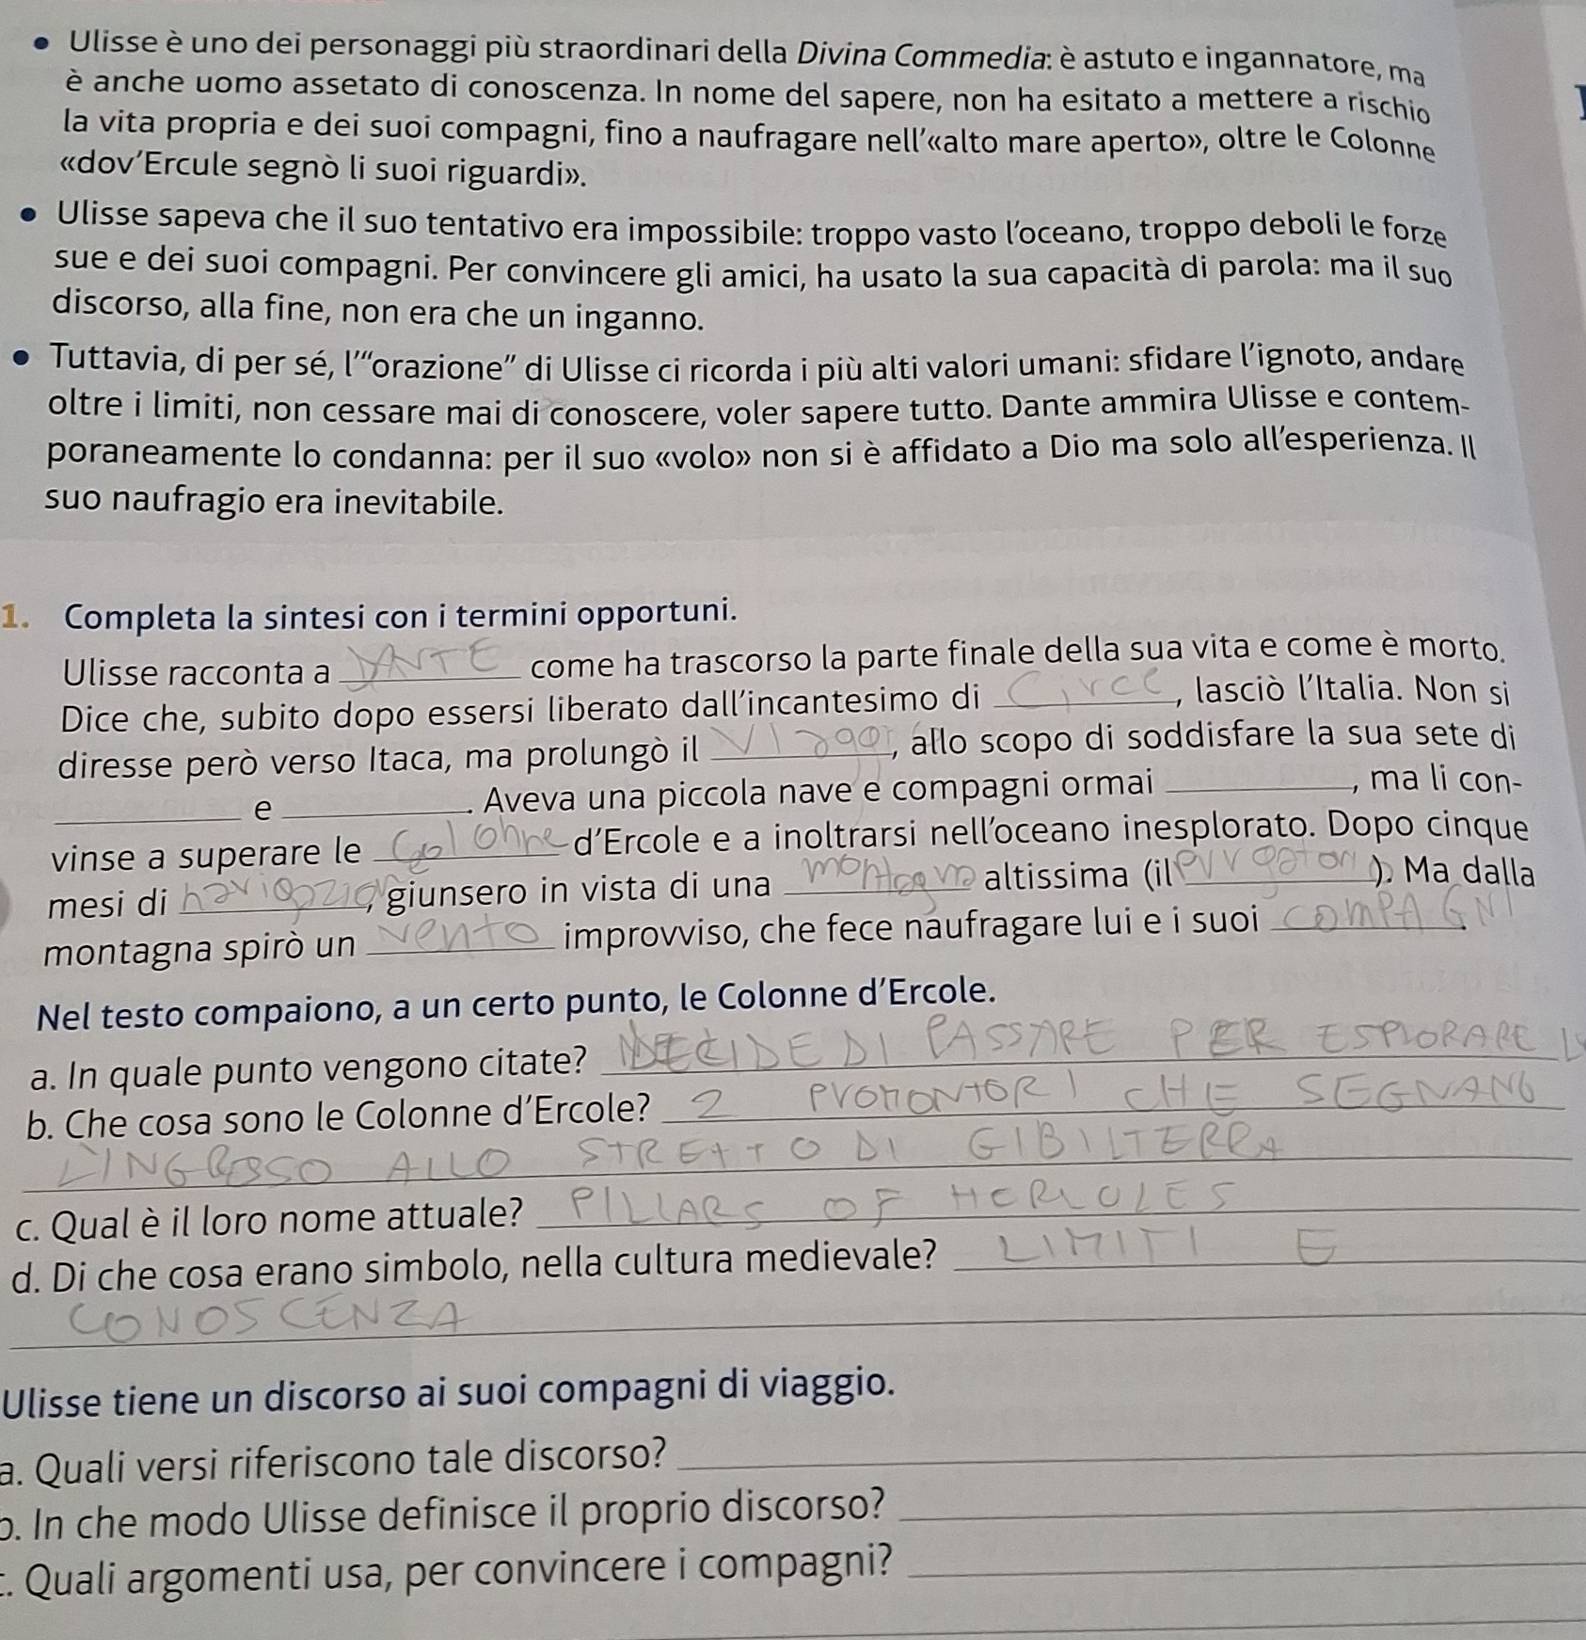 • Ulisse è uno dei personaggi più straordinari della Divina Commedia: è astuto e ingannatore, ma
è anche uomo assetato di conoscenza. In nome del sapere, non ha esitato a mettere a rischio
la vita propria e dei suoi compagni, fino a naufragare nell’«alto mare aperto», oltre le Colonne
«dov’Ercule segnò li suoi riguardi».
• Ulisse sapeva che il suo tentativo era impossibile: troppo vasto l’oceano, troppo deboli le forze
sue e dei suoi compagni. Per convincere gli amici, ha usato la sua capacità di parola: ma il suo
discorso, alla fine, non era che un inganno.
• Tuttavia, di per sé, l’“orazione” di Ulisse ci ricorda i più alti valori umani: sfidare l’ignoto, andare
oltre i limiti, non cessare mai di conoscere, voler sapere tutto. Dante ammira Ulisse e contem-
poraneamente lo condanna: per il suo «volo» non si è affidato a Dio ma solo all’esperienza. Il
suo naufragio era inevitabile.
1. Completa la sintesi con i termini opportuni.
Ulisse racconta a DANTE come ha trascorso la parte finale della sua vita e come è morto.
Dice che, subito dopo essersi liberato dall’incantesimo di Circe, lasciò l’Italia. Non si
diresse però verso Itaca, ma prolungò il viaggor, allo scopo di soddisfare la sua sete di
____ e ____. Aveva una piccola nave e compagni ormai ____, ma li con-
vinse a superare le Colonne d’Ercole e a inoltrarsi nell’oceano inesplorato. Dopo cinque
mesi di navigazione, giunsero in vista di una montagna altissima (il purgatori). Ma dalla
montagna spirò un vento improvviso, che fece naufragare lui e i suoi COMPAGNI.
Nel testo compaiono, a un certo punto, le Colonne d’Ercole.
a. In quale punto vengono citate? DECIDE DI PASSARE PER ESPLORARE
b. Che cosa sono le Colonne d’Ercole? 2 PROMONTORI CHE SEGNANO
L'INGROSSO ALLO STRETTO DI GIBILTERRA
c. Qual è il loro nome attuale? PILLARS OF HERCULES
d. Di che cosa erano simbolo, nella cultura medievale? LIMITI E
CONOSCENZA
Ulisse tiene un discorso ai suoi compagni di viaggio.
a. Quali versi riferiscono tale discorso?
b. In che modo Ulisse definisce il proprio discorso?
c. Quali argomenti usa, per convincere i compagni?